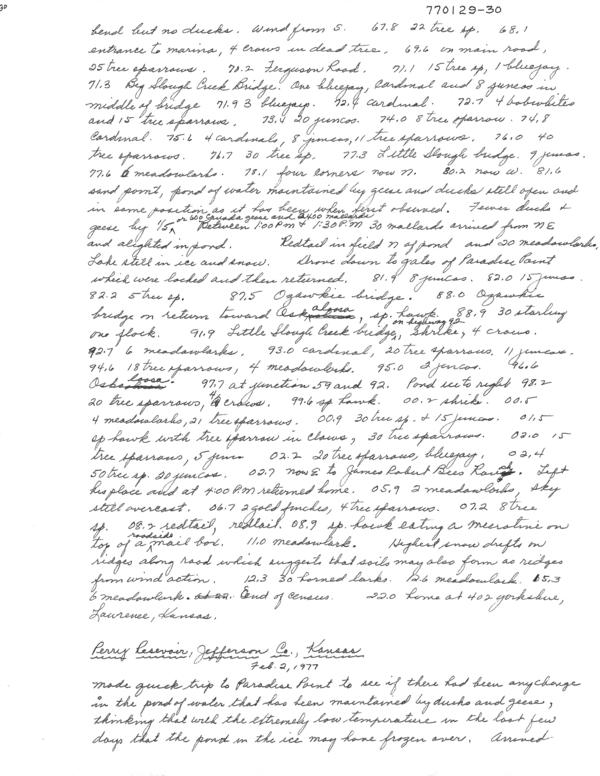 770129-30
bend but no ducks. Wind from S. 67.8 22 tree sp. 68.1
entrance to marina, 4 crows in dead tree. 69.6 on main road,
25 tree sparrows. 70.2 Ferguson Road. 71.1 15 tree sp, 1 bluejay.
71.3 Big Slough Creek Bridge. One bluejay, Cardinal and 8 juncos in
middle of bridge 71.9 3 bluejay. 72.4 cardinal. 72.7 4 bobwhites
and 15 tree sparrows. 73.4 20 juncos. 74.0 8 tree sparrow. 74.8
Cardinal. 75.6 4 cardinals, 8 juncos, 11 tree sparrows. 76.0 40
tree sparrows. 76.7 30 tree sp. 77.3 Little Slough bridge. 9 juncos.
77.6 6 meadowlarks. 78.1 four corners now N. 80.2 now W. 81.6
sand point, pond of water maintained by geese and ducks still open and
in same position as it has been when first observed. Fewer ducks &
geese by 1/5 or 600 Canada geese and 2400 mallards. Between 1:00 P.M & 1:30 P.M 30 mallards arrived from NE
and alighted in pond. Redtail in field N of pond and 20 meadowlarks.
Lake still in ice and snow. Drove down to gates of Paradise Point
which were locked and then returned. 81.9 8 juncos. 82.0 15 juncos.
82.2 5 tree sp. 87.5 Ozawkie bridge. 88.0 Ozawkie
bridge on return toward Oskaloosa, sp. hawk. 88.9 30 starling
one flock. 91.9 Little Slough Creek bridge, on highway 92 Shrike, 4 crows.
92.7 6 meadowlarks. 93.0 cardinal, 20 tree sparrows, 11 juncos.
94.6 18 tree sparrows, 4 meadowlarks. 95.0 2 juncos. 96.6
Oskaloosa. 97.7 at junction 59 and 92. Pond ice to right 98.2
20 tree sparrows, 4 crows. 99.6 sp hawk. 00.2 shrike. 00.5
4 meadowlarks, 21 tree sparrows. 00.9 30 tree sp. & 15 juncos. 01.5
sp hawk with tree sparrow in claws, 30 tree sparrows. 02.0 15
tree sparrows, 5 junco 02.2 20 tree sparrows, bluejay. 02.4
50 tree sp. 20 juncos. 02.7 now E to James Robert Bees Ranch. Left
his place and at 4:00 P.M returned home. 05.9 2 meadowlarks, sky
still overcast. 06.7 2 gold finches, 4 tree sparrows. 07.2 8 tree
sp. 08.2 redtail, redtail. 08.9 sp. hawk eating a microtine on
top of a roadside mail box. 11.0 meadowlark. Highest snow drifts on
ridges along road which suggests that soils may also form as ridges
from wind action. 12.3 30 horned larks. 12.6 meadowlark. 15.3
6 meadowlark. End of census. 22.0 home at 402 Yorkshire,
Lawrence, Kansas.
Perry Resevoir, Jefferson Co., Kansas
Feb. 2, 1977
Made quick trip to Paradise Point to see if there had been any change
in the pond of water that has been maintained by ducks and geese,
thinking that with the extremely low temperature in the last few
days that the pond in the ice may have frozen over. Arrived